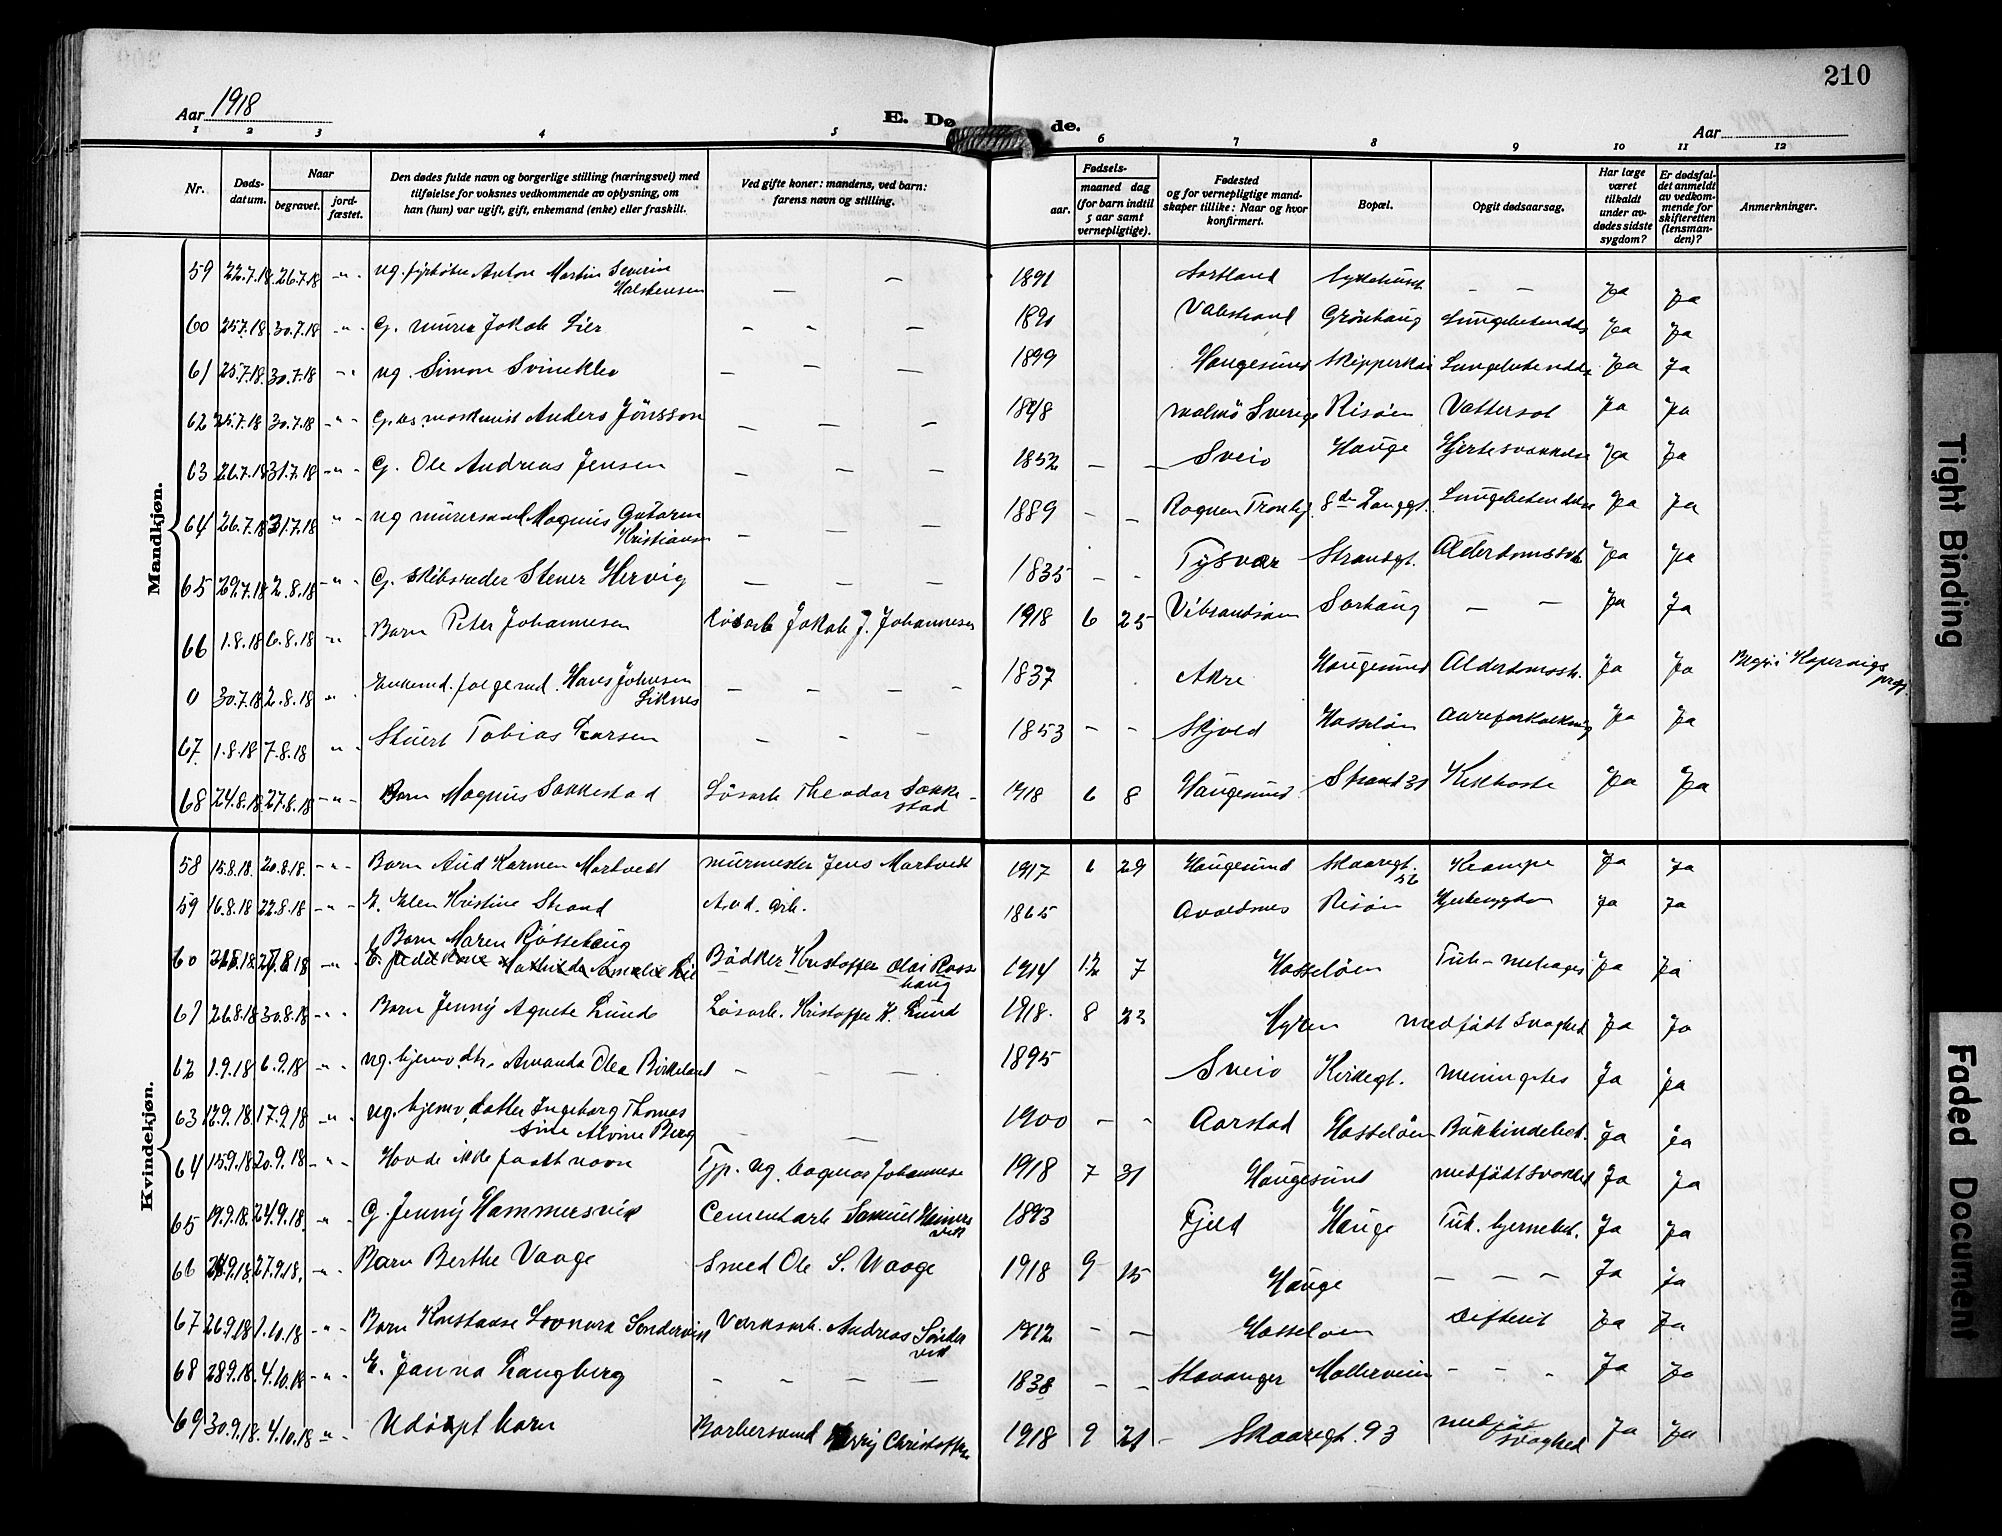 210
Aar 1918
E. Dø de.
Aar
1 2 3 4 5 6 7 8 9 10 11 12
Nr.
Døds-datum.
Naar
begravet.
jord-fæstet.
Den dødes fulde navn og borgerlige stilling (næringsvei) med
tilføielse for voksnes vedkommende av oplysning, om
han (hun) var ugift, gift, enkemand (enke) eller fraskilt.
Ved gifte koner: mandens, ved barn:
farens navn og stilling.
Fødsels-
aar.
maaned dag
(for barn indtil
5 aar samt
vernepligtige).
Fødested
og for vernepligtige mand-
skaper tillike: Naar og hvor
konfirmert.
Bopæl.
Opgit dødsaarsag.
Har læge
været
tilkaldt
under av-
dødes sidste
sygdom?
Er dødsfal-
det anmeldt
av vedkom-
mende for
skifteretten
(lensman-
den)?
Anmerkninger.
Mandkjøn.
59 22.7.18 26.7.18 -"- ug. fyrbøter Anton Martin Severin Halstensen — — 1891 Sortland Sykehuset — — Ja Ja
60 25.7.18 30.7.18 -"- G. murer Jakob Lier — — — 1890 Grönhaug Lungebetendelse Ja Ja
61 25.7.18. 30.7.18 -"- ug. Simon Svineklev — — — 1899 Haugesund Skipperkai Lungebetendelse Ja Ja
62 25.7.18 30.7.18 -"- G. maskinist Anders Jönsson — — — 1848 Malmö Sverige Risöen Vattersot Ja Ja
63 26.7.18 31.7.18 -"- G. Ole Andreas Jensen — — — 1852 — — Sveio Hauge Hjertesvakkelse Ja Ja
64 26.7.18 31.7.18 -"- ug murersvend Magnus Kristiansen — — — 1889 — — 8de Langgt. Lungebetendelse Ja Ja
65 29.7.18 2.8.18 -"- G. skibsreder Stener Hervig — — — 1835 — — Tysvær Strandgt. Alderdomssvak Ja Ja
66 1.8.18 6.8.18 -"- Barn Peter Johannesen Lösarb Jakob J. Johannesen 1918 6 25 Vibrandsöen Sørhaug — — Ja Ja
0 30.7.18 2.8.18 -"- Enkemd. folgemd. Hans Johnsen Liknes — — — — 1837 Akre Haugesund Alderdomssk. Ja Ja Begr. i Kopervigs prgj.
67. 1.8.18 7.8.18 -"- Stuert Tobias Larsen — — — 1853 — — Skjold Hasseløen Aareforkalkning Ja Ja
68 24.8.18. 27.8.18 -"- Barn Magnus Sakkestad Lösarb Theodor Sakkestad 1918 6 8 Haugesund Strand 31 Kikhoste Ja Ja
Kvindekjøn.
58 15.8.18. 20.8.18. -"- Barn Aud Karmen Mortvedt murmester Jens Mortvedt 1917 6 29 Haugesund Skaaregt. 56 Krampe Ja Ja
59 16.8.18 22.8.18 -"- E. Elen Kristine Strand Avd. arb. 1865 Avaldsnes Risöen Hjertesygdom Ja Ja
60 27.8.18 -"- Barn Maren Røssehaug Bödker Kristoffer Olai Rossehaug 1914 12 7 Hasselöen Ja Ja
61 26.8.18 30.8.18 -"- Barn Jenny Agnete Lunde Lösarb. Kristoffer K. Lund 1918. 8 23 medfödt svaghed Ja Ja
62 1.9.18 6.9.18 -"- ug. hjemv.dtr. Amanda Olea Birkeland — — — 1895 Sveio Kirkegt. meningites Ja Ja
63 12.9.18. 17.9.18 -"- ug. hjemv. datter Ingeborg Thomassine Alvine Berg — — 1900 — — Aarstad Hasseløen Ja Ja
64 15.9.18 20.9.18 -"- Havde ikke faatt navn Typ. ug. Magnus Johannesen 1918 7 31 Haugesund medfödt svakhed Ja Ja
65 19.9.18. 24.9.18. -"- G. Jenny Hammersvik Cementarb Samuel Hammersvik 1893 Fjeld Hauge Tub. hjernebet. Ja Ja
66 24.9.18. 27.9.18. -"- Barn Berthe Vaage Smed Ole S. Waage 1918 9 15 Hauge — — — Ja Ja
67 26.9.18 1.10.18 -"- Barn Konstanse Leonora Söndervik Verksarb. Andreas Söndervik 1912 — — Hasseløen Difterit Ja Ja
68 28.9.18. 4.10.18 -"- E. Janna Langberg — — — — 1838 — — Stavanger Møllerveien — — - Ja Ja
69 30.9.18. 4.10.18 -"- Udöpt barn Barbersvend Christoffersen 1918 9 21 - Skaaregt. 93 medfödt svaghed Ja Ja
Tight Binding
Faded Document